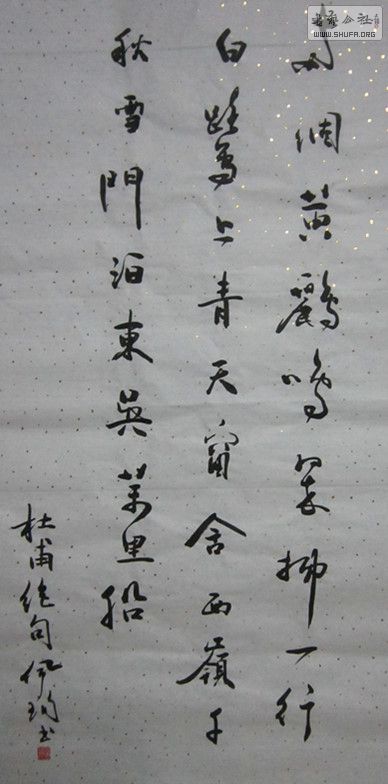 書藝公社
WWW.SHUFA.ORG
兩個黄鸝鳴翠柳一行
白鷺上青天窗含西嶺千
秋雪門泊東吳萬里船
杜甫絕句伊书